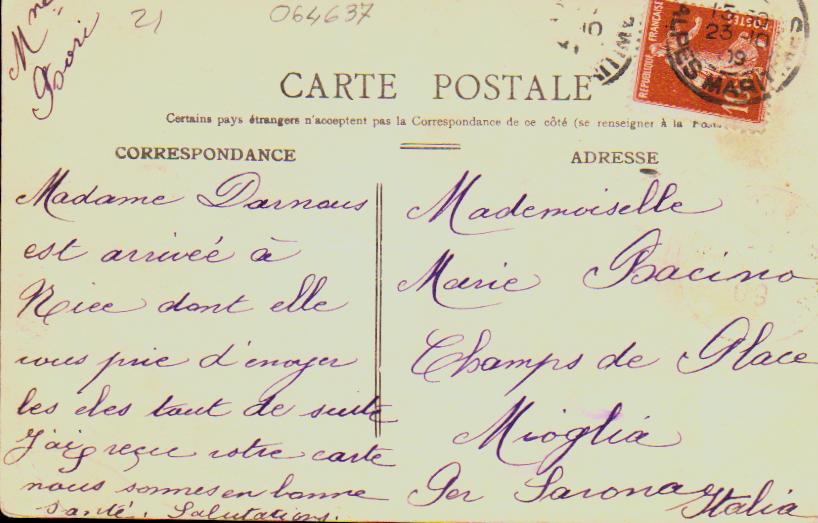 Mme
Bori
21
064637
RÉPUBLIQUE FRANÇAISE
POSTES
10
23 10
09
ALPES MARITIMES
CARTE POSTALE
Certains pays étrangers n'acceptent pas la Correspondance de ce côté (se renseigner à la Poste
CORRESPONDANCE
Madame Darnous
est arriveé à
Nice dont elle
vous prie d'envoyer
les cles tout de suite
J'ai reçue votre carte
nous sommes en bonne
santé. Salutations.
ADRESSE
Mademoiselle
Marie Bacino
Champs de Place
Mioglia
Per Savona Italia